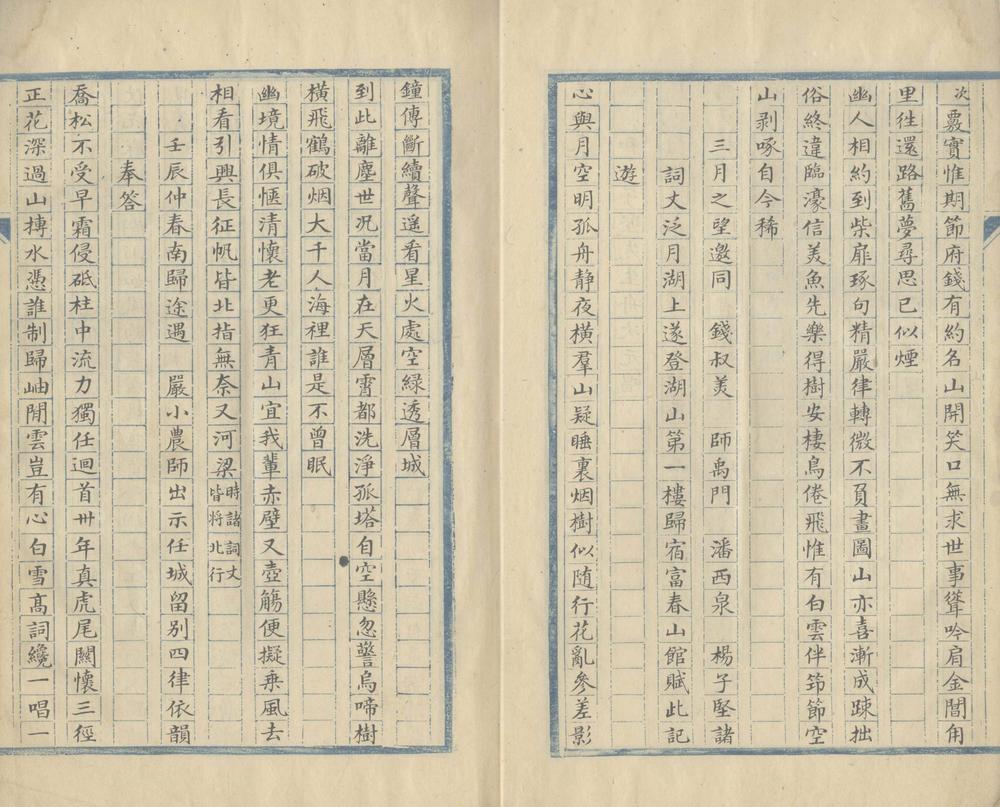 次覈實惟期節府錢有約名山開笑口無求世事聳吟肩金閶甪
里徃還路舊夢尋思已似煙
幽人相約到柴扉琢句精嚴律轉微不負畫圖山亦喜漸成踈拙
俗終違臨濠信美魚先樂得樹安棲鳥倦飛惟有白雲伴笻節空
山剥啄自今稀
三月之望邀同 錢叔美 師禹門 潘西泉 楊子堅諸
詞丈泛月湖上遂登湖山第一樓歸宿富春山館賦此記
遊
心與月空明孤舟静夜橫羣山疑睡裏烟樹似随行花亂參差影
鐘傳斷續聲遥看星火處空綠透層城
到此離塵世况當月在天層霄都洗淨孤塔自空懸忽警烏啼樹
橫飛鶴破烟大千人海裡誰是不曾眠
幽境情俱愜清懷老更狂青山宜我輩赤壁又壺觴便擬乗風去
相看引興長征帆皆北指無奈又河梁時諸詞丈皆將北行
壬辰仲春南歸途遇 嚴小農師出示任城留別四律依韻
奉答
喬松不受早霜侵砥柱中流力獨任迴首卅年真虎尾關懷三徑
正花深過山摶水憑誰制歸岫閒雲豈有心白雪髙詞纔一唱一